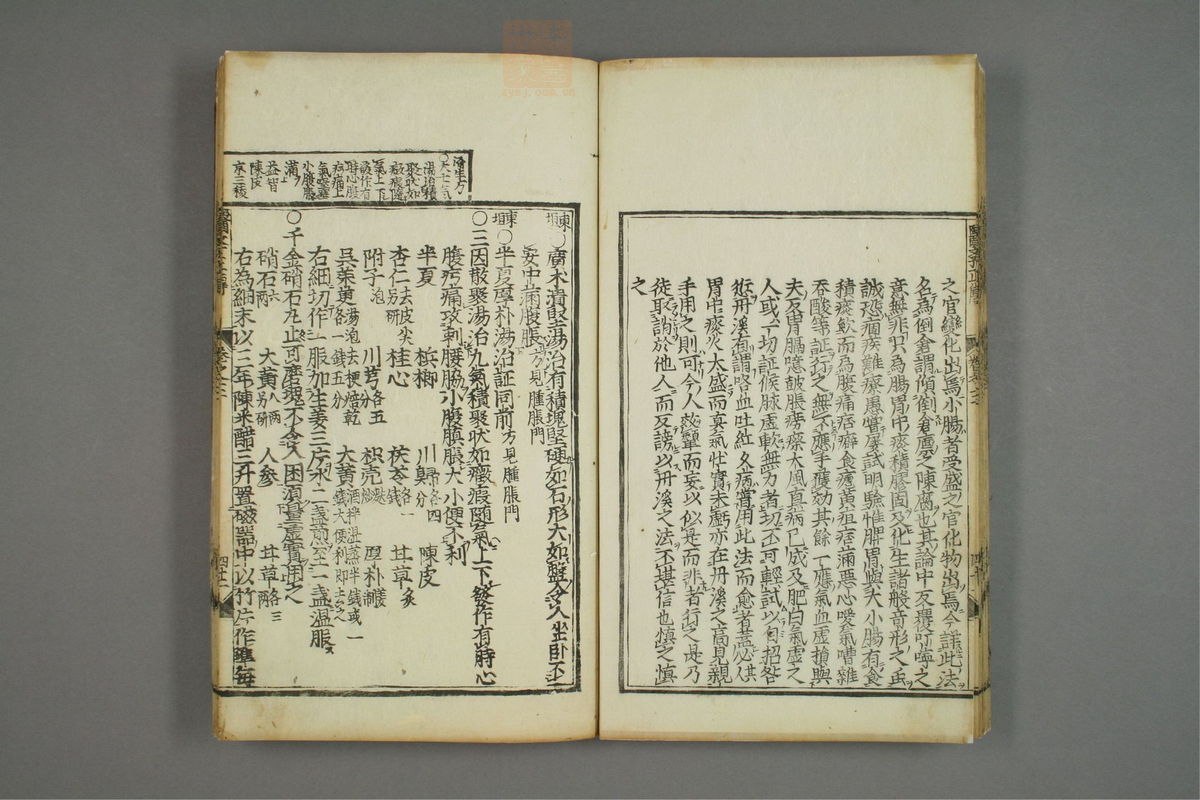 之官變化出焉小腸者受盛之官化物出焉今詳此法
名為倒倉謂傾倒倉廩之陳腐也其論中反覆叮嚀之
意無非只為腸胃中痰積膠固変化生諸般竒形之虫
誠恐痼疾難療愚嘗屡試明驗惟脾胃與大小腸有食
積痰飲而為腹痛痞癖食瘧黄疸痞滿悪心噯氣嘈雜
吞酸等証行之無不應手獲効其餘一應氣血虚損與
夫反胃膈噎鼓脹癆瘵大風真病已成及肥白氣虚之
人或一切証候脉虚軟無力者切不可輕試以自招咎
丹溪有謂咯血吐紅久病嘗用此法而愈者蓋必人
胃中痰火太盛而真氣壮實未虧亦在丹溪之高見親
手用之則可今人效顰而妄以似是而非者行之是乃
徒取誚於他人而反謗以丹溪之法不堪信也慎之慎
之
濟生方
○大七氣
湯治積
聚狀如
癥瘕隨
氣上下
發作有
時心腹
痛上
氣窒塞
小腹脹
滿
益智
陳皮
京三稜
東垣○廣木潰堅湯治有積塊堅硬如石形大如盤令人坐卧不
安中滿腹脹方見腫脹門
東垣○半夏厚朴湯治証同前方見腫脹門
○三因散聚湯治九氣積聚状如癥瘕隨氣上下發作有時心
腹疞痛攻刺腰脇小腹䐜脹大小便不利
半夏 梹榔 川歸各四分 陳皮
杏仁去皮尖另研 桂心 茯苓各一錢 甘草炙
附子泡 川芎各五分 枳壳 厚朴制
呉茱萸湯泡去梗焙乾各一錢五分 大黄酒拌湿蒸半錢或一錢大便利即去之
右細切作一服加生姜三片水二盞煎至一盞温服
○千金硝石丸止可磨塊不令人困須量虚實用之
硝石六兩 大黄八兩另研 人参 甘草各三兩
右為細末以三年陳米醋三升置磁器中以竹片作凖每